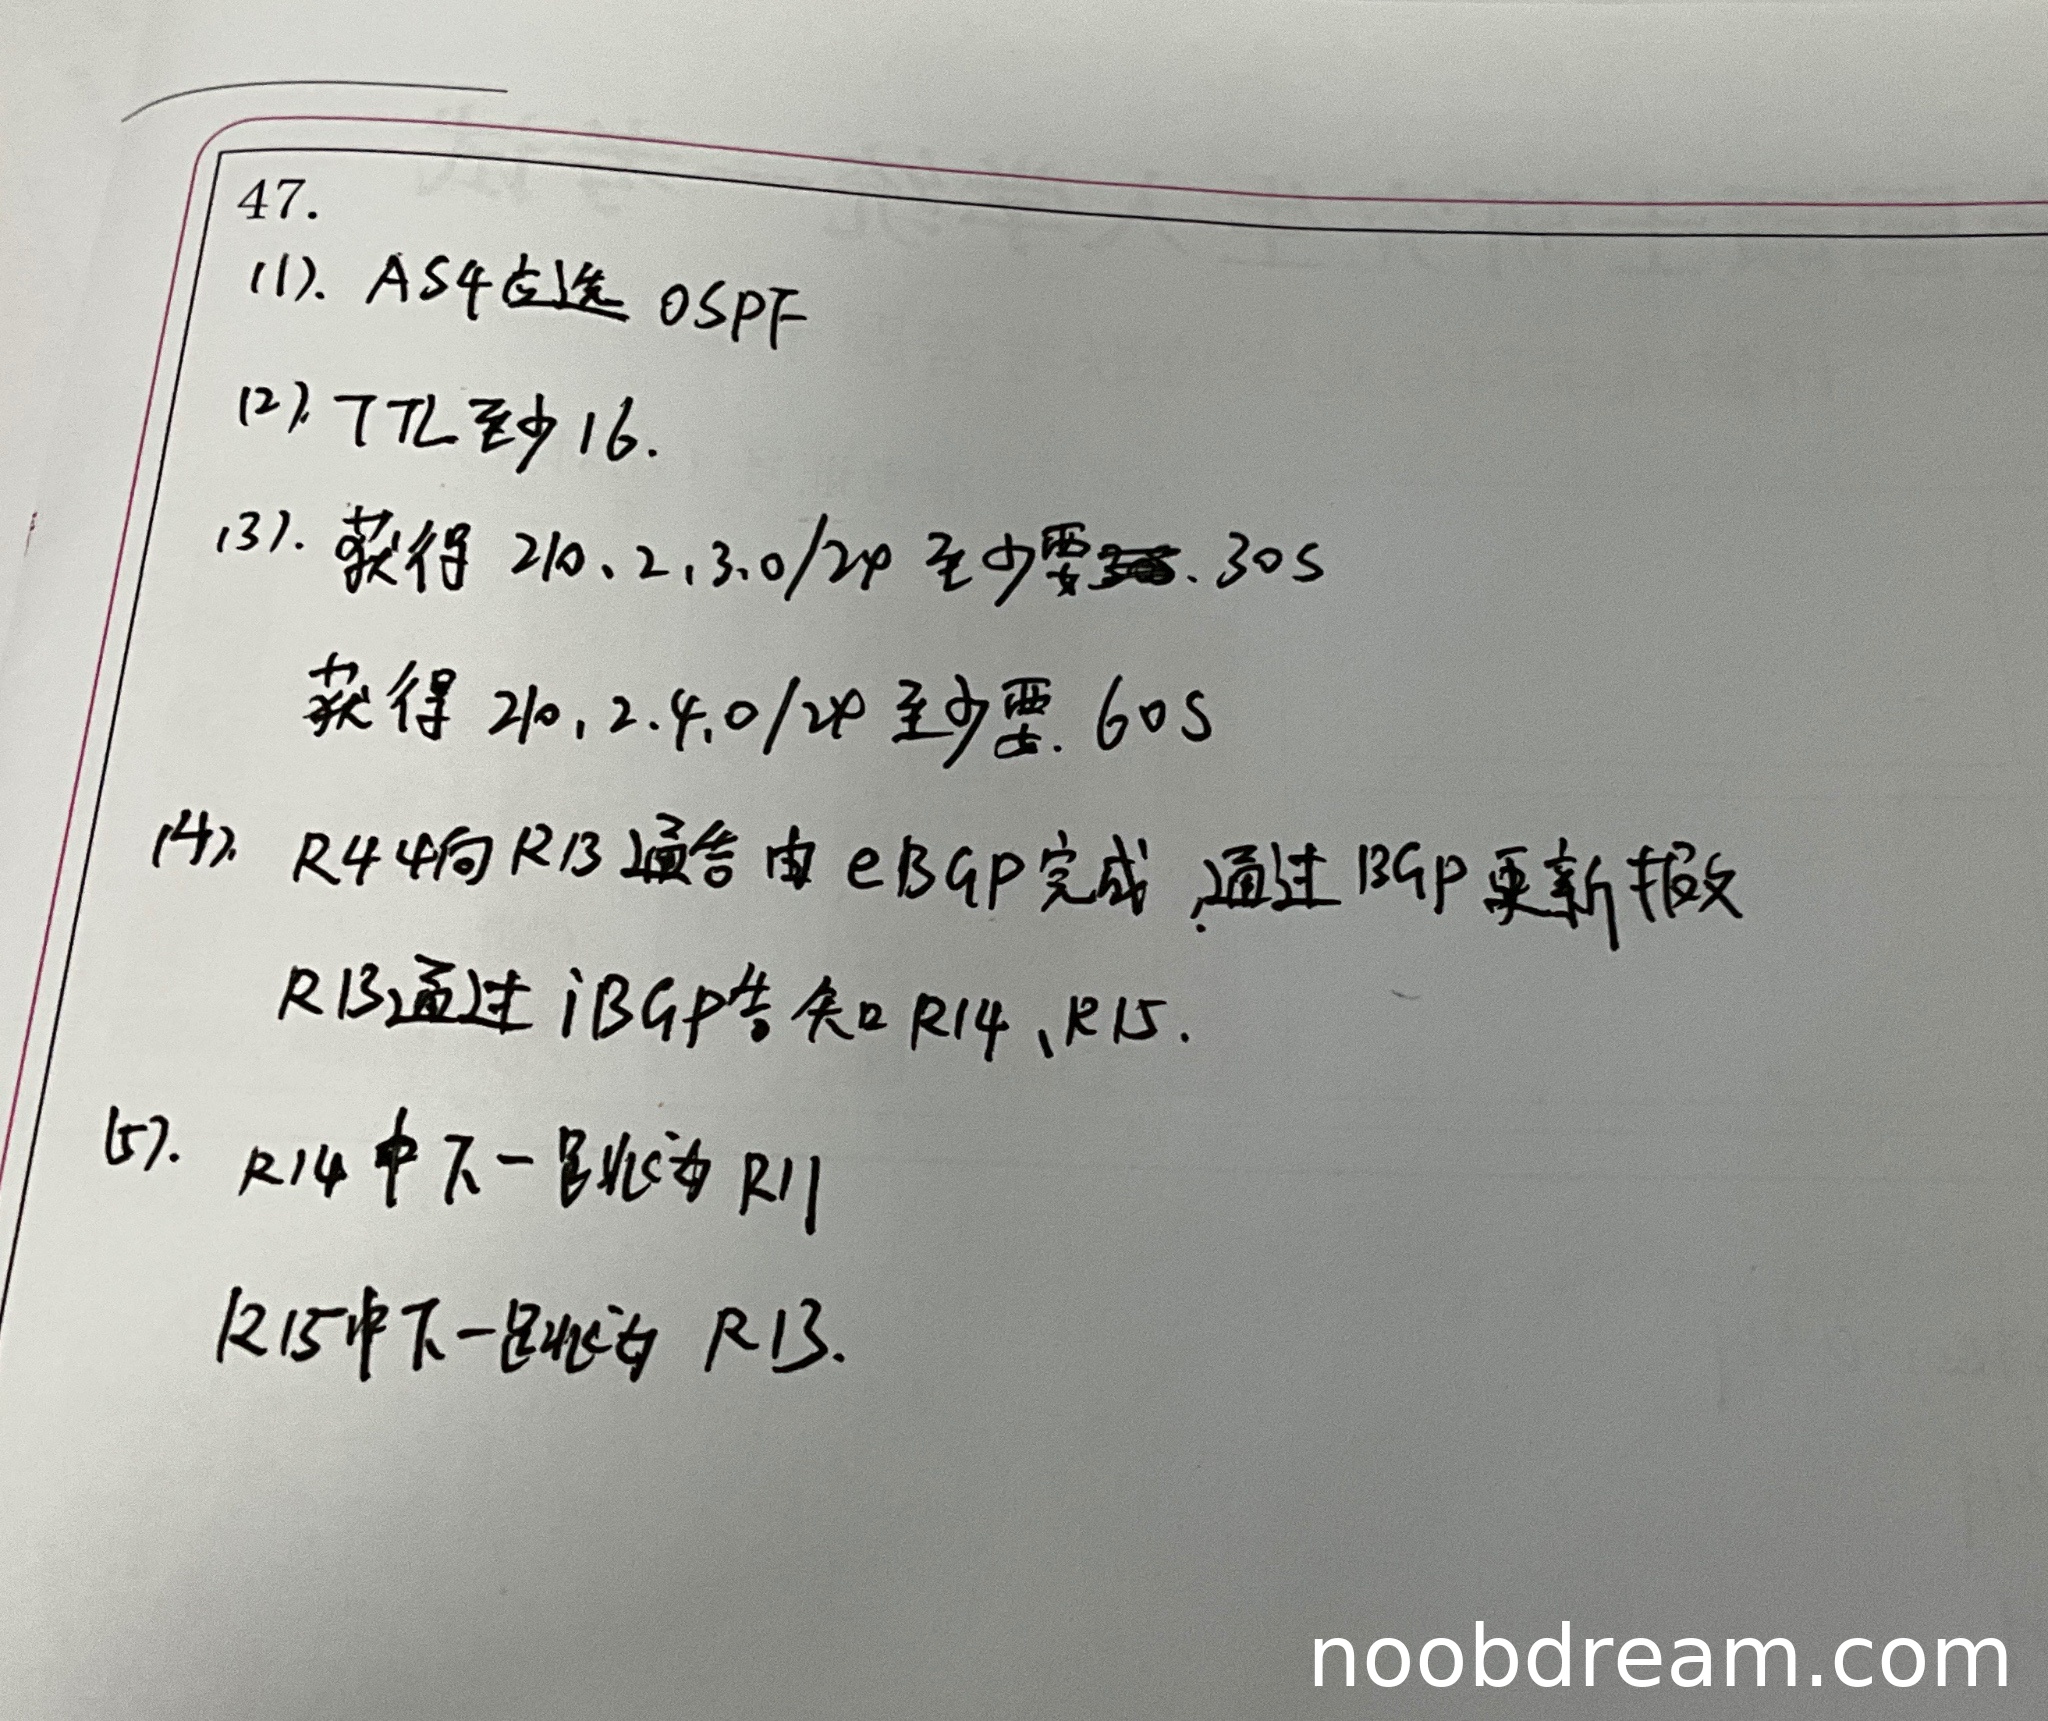 47.
(1). AS4应选 OSPF
(2). TTL至少16.
(3). 获得 210.2.3.0/24 至少要. 30S
获得 210.2.4.0/24 至少要. 60S
(4). R44向R13通告由eBGP完成,通过BGP更新报文
R13通过iBGP告知R14、R15.
(5). R14中下一跳为R11
R15中下一跳为 R13.
noobdream.com